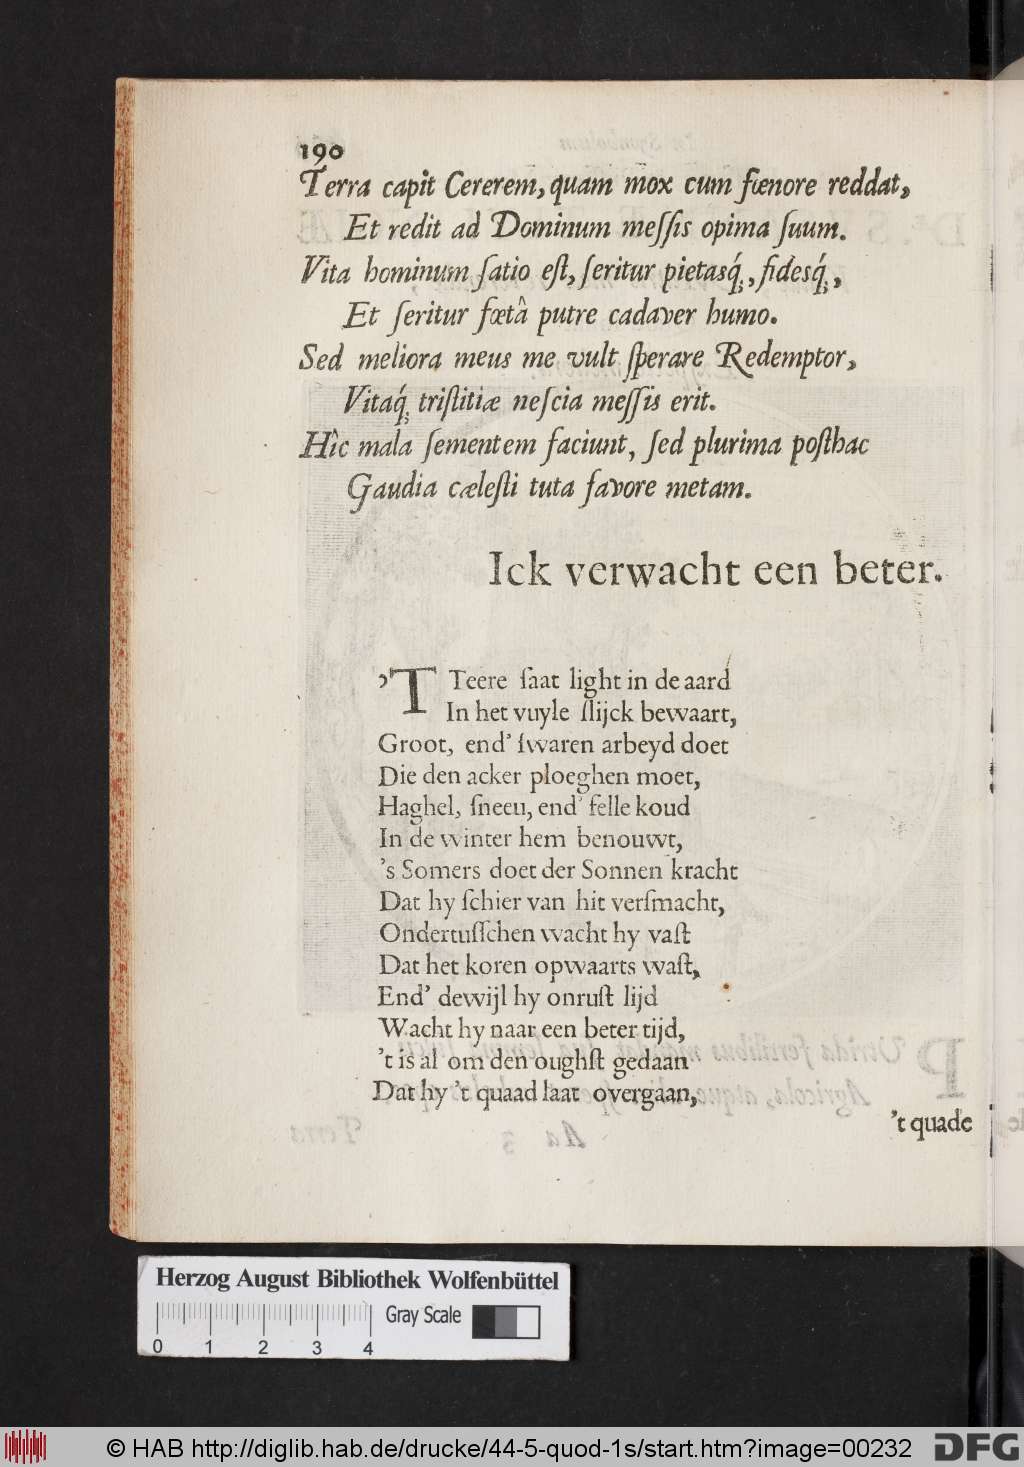 190
Terra capit Cererem, quam mox cum fœnore reddat,
Et redit ad Dominum meſſis opima ſuum.
Vita hominum ſatio eſt, ſeritur pietasq́;, fidesq́;,
Et ſeritur fœtâ putre cadaver humo.
Sed meliora meus me vult ſperare Redemptor,
Vitaq́; triſtitiæ neſcia meſſis erit.
Hîc mala ſementem faciunt, ſed plurima poſthac
Gaudia cæleſti tuta favore metam.
Ick verwacht een beter.
'T Teere ſaat light in de aard
In het vuyle ſlijck bewaart,
Groot, end' ſwaren arbeyd doet
Die den acker ploeghen moet,
Haghel, ſneeu, end' felle koud
In de winter hem benouwt,
's Somers doet der Sonnen kracht
Dat hy ſchier van hit verſmacht,
Ondertuſſchen wacht hy vaſt
Dat het koren opwaarts waſt,
End' dewijl hy onruſt lijd
Wacht hy naar een beter tijd,
't is al om den oughſt gedaan
Dat hy 't quaad laat overgaan,
't quade
Herzog August Bibliothek Wolfenbüttel
Gray Scale
0 1 2 3 4
© HAB http://diglib.hab.de/drucke/44-5-quod-1s/start.htm?image=00232
DFG